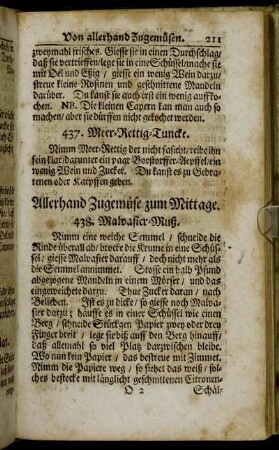 Von allerhand Zugemüsen. 211
zweymahl frisches. Giesse sie in einen Durchschlag/
daß sie vertrieffen/ lege sie in eine Schüssel/ mache sie
mit Oel und Eßig / giesse ein wenig Wein darzu/
streue kleine Rosinen und geschnittene Mandeln
darüber. Du kanst sie auch erst ein wenig auffko-
chen. NB. Die kleinen Capern kan man auch so
machen/ aber sie dürffen nicht gekocht werden.
437. Meer-Rettig-Tuncke.
Nimm Meer-Rettig der nicht fasicht/ reibe ihn
sein klar/ darunter ein paar Borstorffer-Aepffel/ ein
wenig Wein und Zucker. Du kanst es zu Gebra-
tenen oder Karpffen geben.
Allerhand Zugemüse zum Mittage.
438. Malvasier-Muß.
Nimm eine weiche Semmel / schneide die
Rinde überall ab/ breite die Krume in eine Schüs-
sel / giesse Malvasier darauff / doch nicht mehr als
die Semmel annimmet. Stosse ein halb Pfund
abgezogene Mandeln in einem Mörser / und das
eingeweichte darzu. Thue Zucker daran / nach
Belieben. Ist es zu dicke/ so giesse noch Malva-
sier darzu; häuffe es in einer Schüssel wie einen
Berg / schneide Stückgen Papier zwey oder drey
Finger breit / lege sie biß auff den Berg hinauff/
daß allemahl so viel Platz darzwischen bleibe.
Wo nun kein Papier / das bestreue mit Zimmet.
Nimm die Papiere weg / so siehet das weiß / sol-
ches bestecke mit länglicht geschnittenen Citronen-
O 2 Schäl-